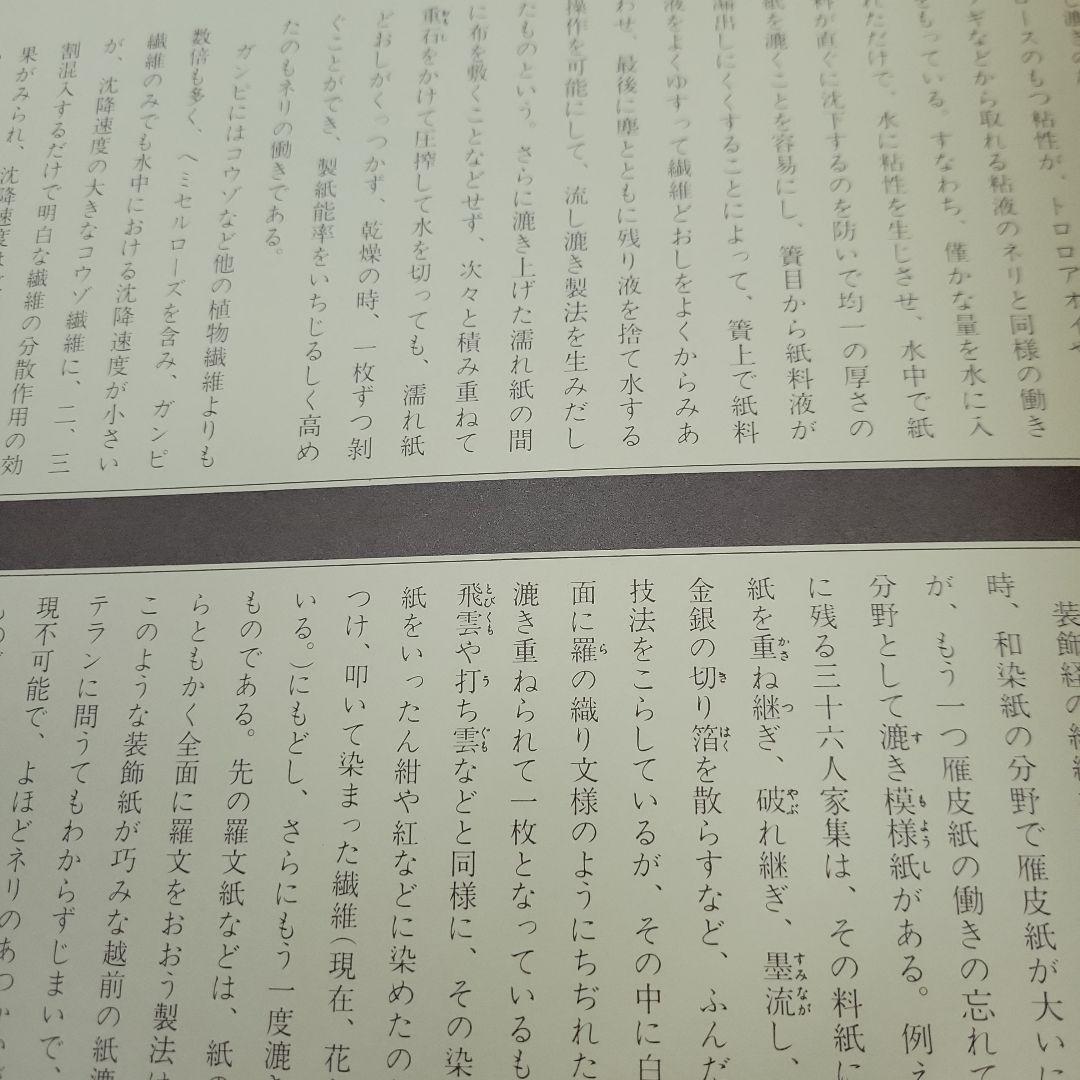 ロースのもつ粘性が、トロロアオイや
ギなどから取れる粘液のネリと同様の働き
をもっている。すなわち、僅かな量を水に入
れただけで、水に粘性を生じさせ、水中で紙
料が直ぐに沈下するのを防いで均一の厚さの
紙を漉くことを容易にし、簀目から紙料液が
漏出しにくくすることによって、簀上で紙料
液をよくゆすって繊維どおしをよくからみあ
わせ、最後に塵とともに残り液を捨て水する
操作を可能にして、流し漉き製法を生みだし
たものという。さらに漉き上げた濡れ紙の間
に布を敷くことなどせず、次々と積み重ねて
重石をかけて圧搾して水を切っても、濡れ紙
どおしがくっつかず、乾燥の時、一枚ずつ剝
ぐことができ、製紙能率をいちじるしく高め
たのもネリの働きである。
ガンピにはコウゾなど他の植物繊維よりも
数倍も多く、ヘミセルローズを含み、ガンピ
繊維のみでも水中における沈降速度が小さい
が、沈降速度の大きなコウゾ繊維に、二、三
割混入するだけで明白な繊維の分散作用の効
果がみられ、沈降速度は
装飾経の
時、和染紙の分野で雁皮紙が大いに
が、もう一つ雁皮紙の働きの忘れて
分野として漉き模様紙がある。例え
に残る三十六人家集は、その料紙に
紙を重ね継ぎ、破れ継ぎ、墨流し、
金銀の切り箔を散らすなど、ふんだ
技法をこらしているが、その中に白
面に羅の織り文様のようにちぢれた
漉き重ねられて一枚となっているも
飛雲や打ち雲などと同様に、その染
紙をいったん紺や紅などに染めたの
つけ、叩いて染まった繊維(現在、花
いる。)にもどし、さらにもう一度漉
ものである。先の羅文紙などは、紙の
らともかく全面に羅文をおおう製法は
このような装飾紙が巧みな越前の紙漉
テランに問うてもわからずじまいで、
現不可能で、よほどネリのあつかい